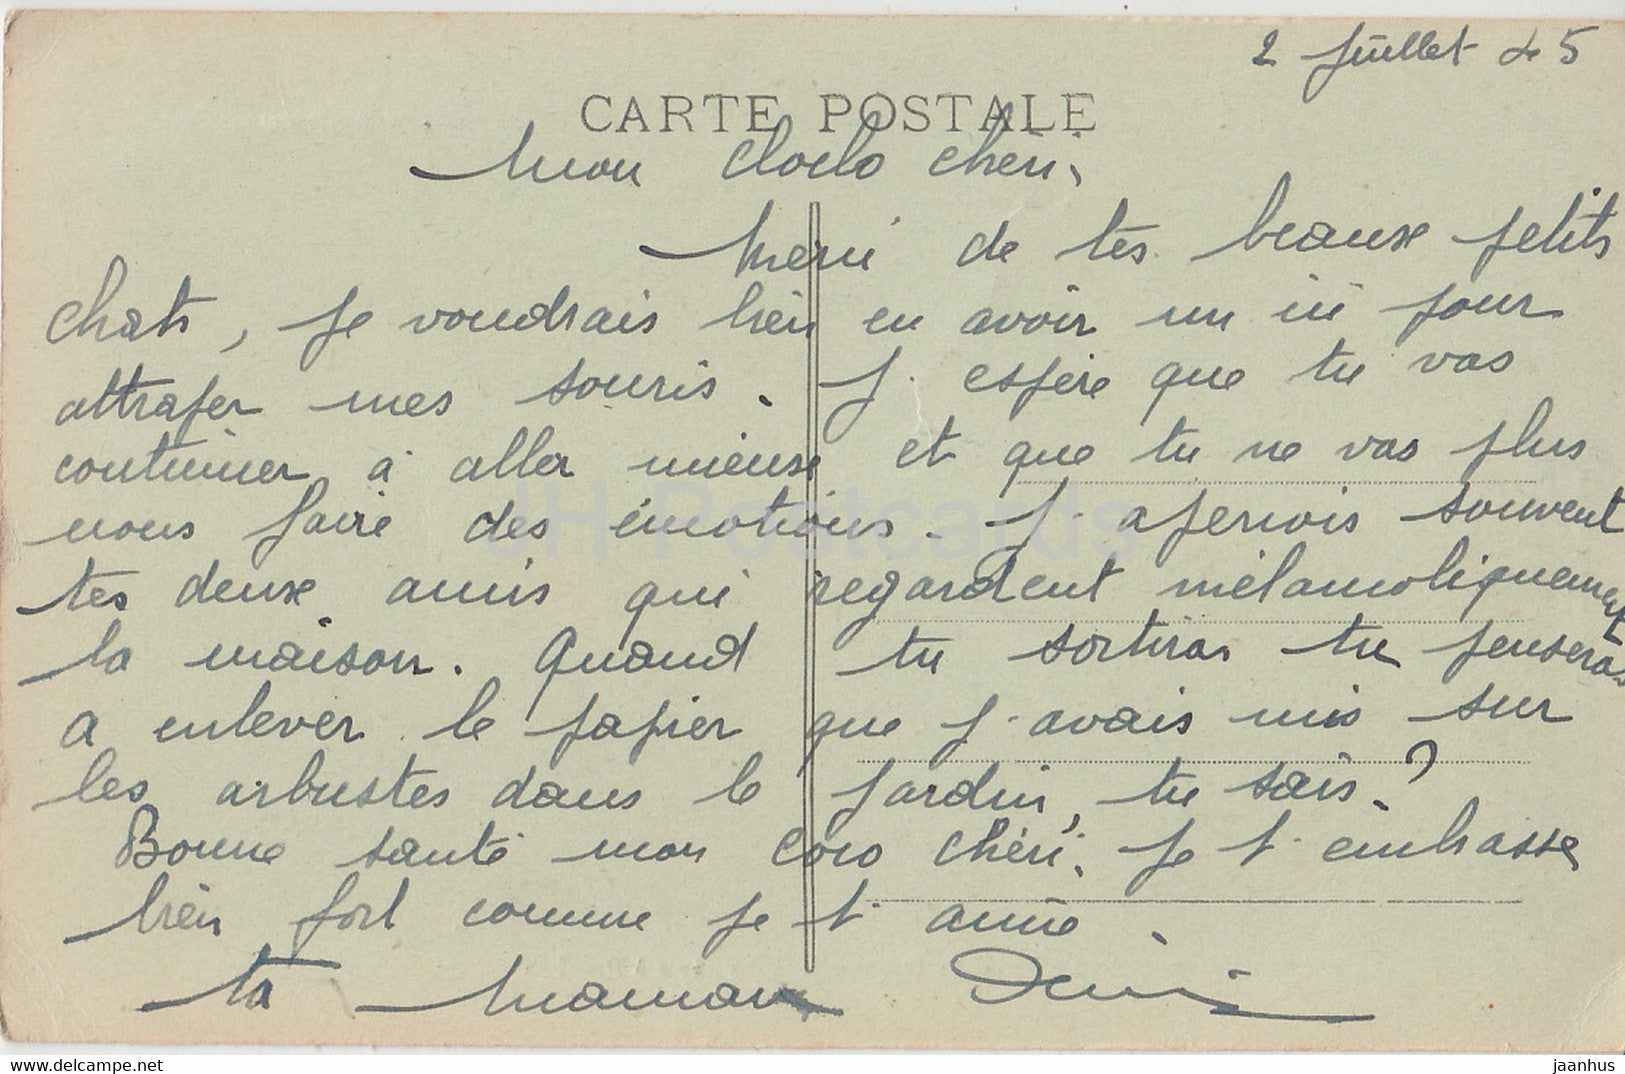 2 Juillet 45
CARTE POSTALE
Mon Cloclo chéri,
Merci de tes beaux petits
chats, je voudrais bien en avoir un ici pour
attraper mes souris. J'espère que tu vas
continuer à aller mieux et que tu ne vas plus
nous faire des émotions. J'aperçois souvent
tes deux amis qui regardent mélancoliquement
la maison. Quand tu sortiras tu penseras
a enlever le papier que j'avais mis sur
les arbustes dans le jardin, tu sais ?
Bonne santé mon Coco chéri. Je t'embrasse
bien fort comme je t'aime.
ta maman
JH Postcards
delcampe.net
jaanhus